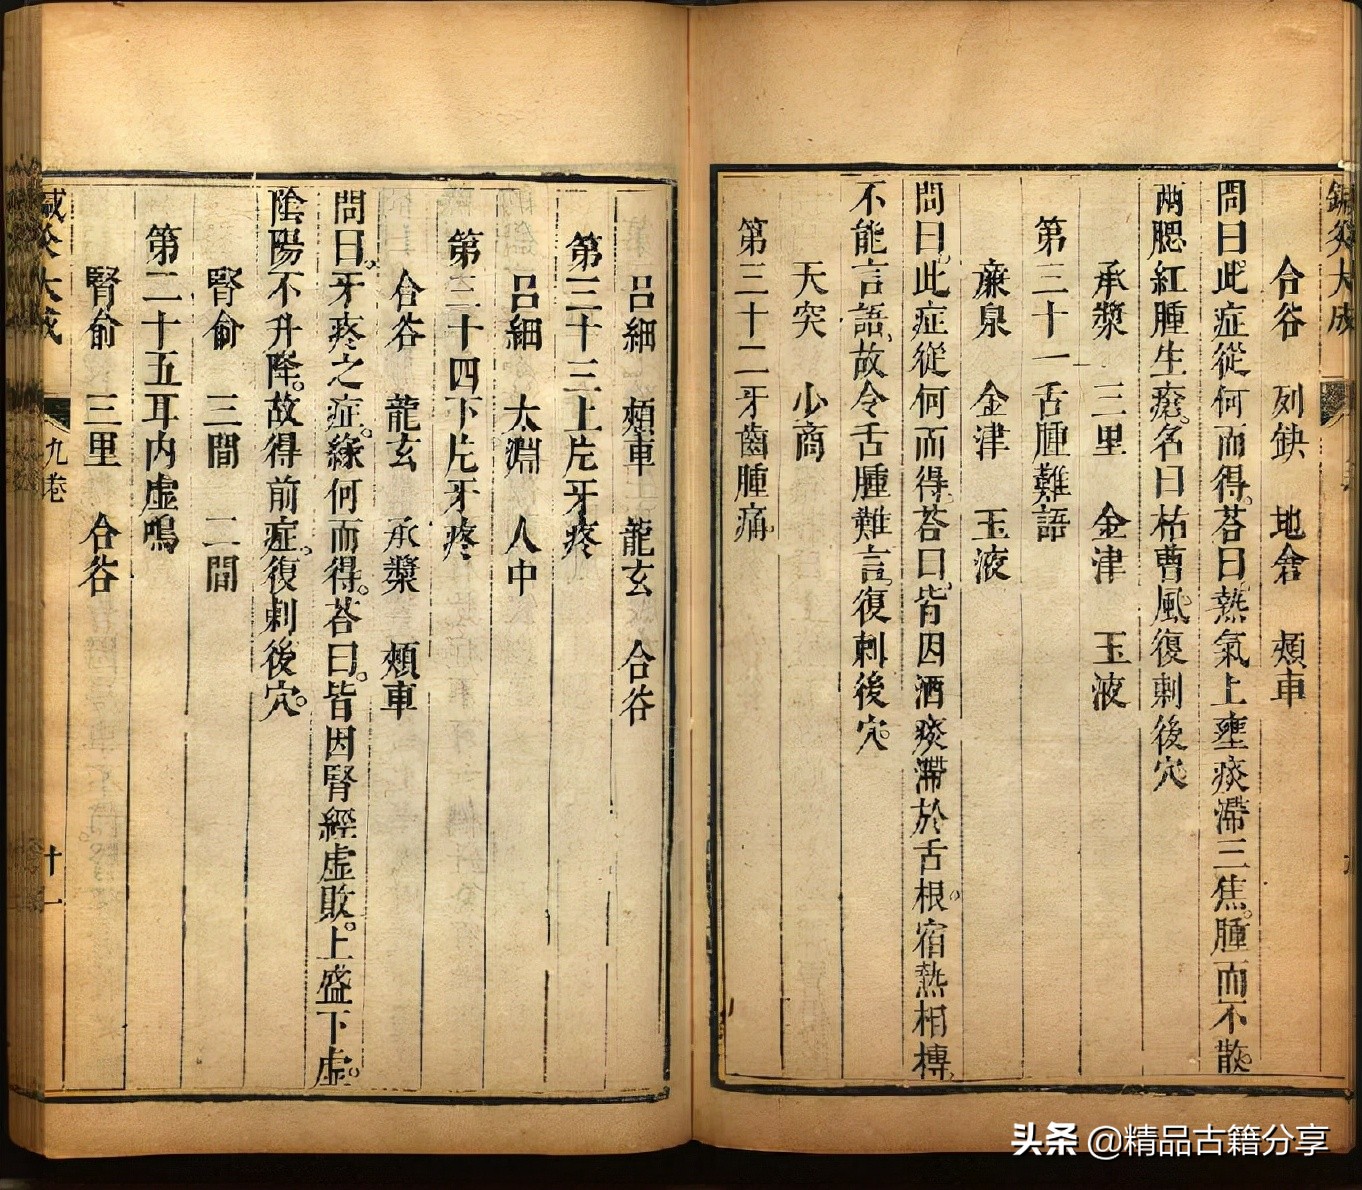 鍼灸大成
合谷 列缺 地倉 頰車
問曰此症從何而得。荅曰熱氣上壅痰滯三焦。腫而不散。
兩腮紅腫生瘡。名曰枯曹風。復刺後穴。
承漿 三里 金津 玉液
第三十一舌腫難語
廉泉 金津 玉液
問曰。此症從何而得。荅曰。皆因酒痰滯於舌根。宿熱相搏。
不能言語。故令舌腫難言。復刺後穴。
天突 少商
第三十二牙齒腫痛。
呂細 頰車 龍玄 合谷
第三十三上片牙疼
呂細 太淵 人中
第三十四下片牙疼
合谷 龍玄 承漿 頰車
問曰。牙疼之症。緣何而得。荅曰。皆因腎經虛敗。上盛下虛。
陰陽不升降。故得前症。復刺後穴。
腎俞 三間 二間
第二十五耳內虛鳴
腎俞 三里 合谷
鍼灸大成 九卷 十一
头条 @精品古籍分享